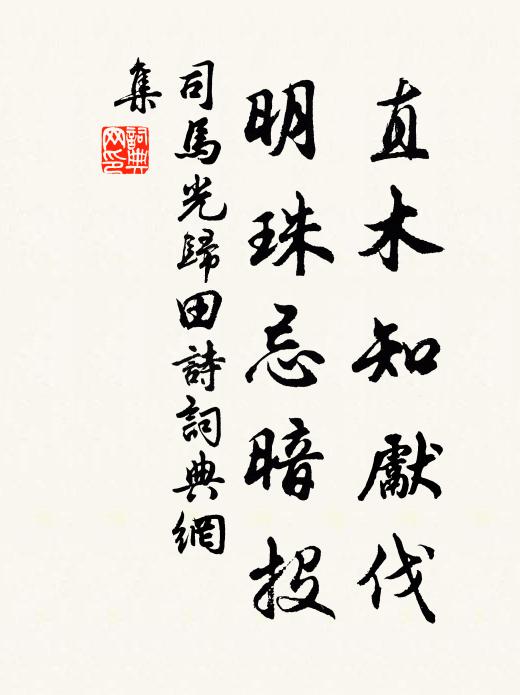 直木知獻伐
明珠忌暗投
司馬光歸田詩詞典網
集
詞典網印